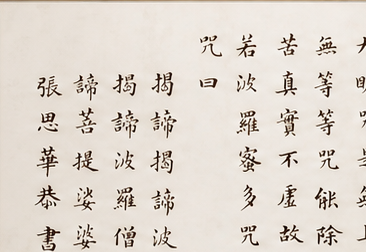 大明咒是無上
無等等咒能除
苦真實不虛故
若波羅蜜多咒
咒曰
揭諦揭諦波
揭諦波羅僧
諦菩提娑婆
張思華恭書